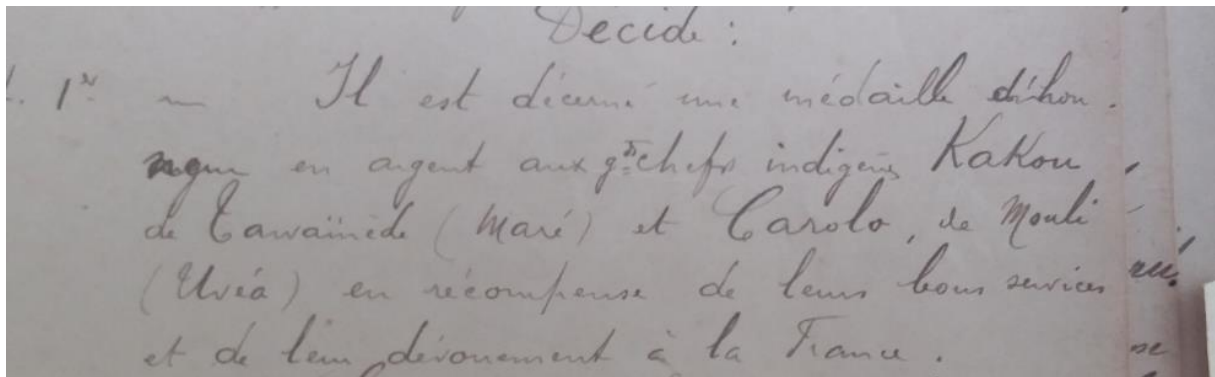 Décide :
. 1er — Il est décerné une médaille d'hon-
neur en argent aux gds chefs indigènes Kakou,
de Tawaïnède (Maré) et Carolo, de Mouli
(Uvéa) en récompense de leurs bons services
et de leur dévouement à la France.